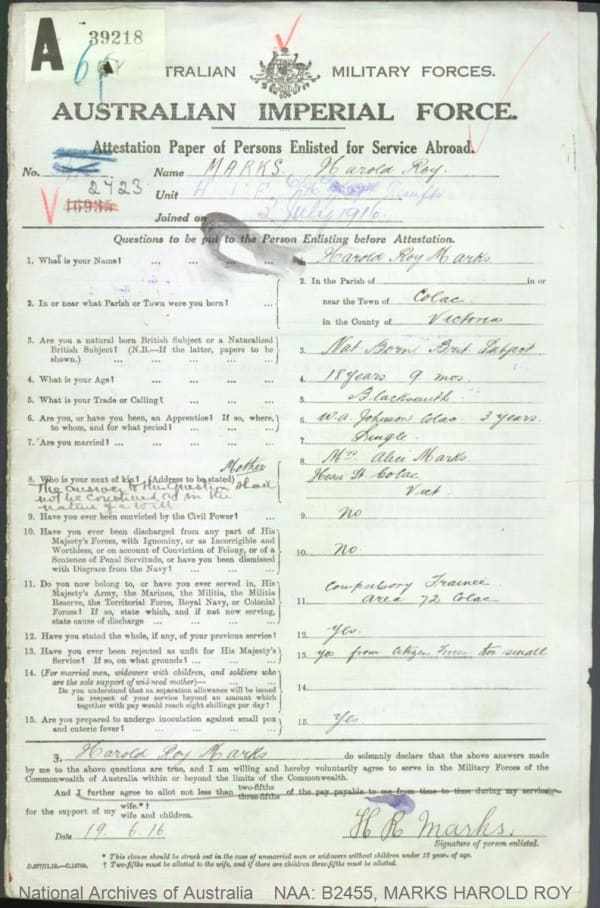 A
39218
TRALIAN MILITARY FORCES.
AUSTRALIAN IMPERIAL FORCE.
Attestation Paper of Persons Enlisted for Service Abroad.
No. 2723 Name MARKS. Harold Roy.
16935 Unit
Joined on 3 July 1916
Questions to be put to the Person Enlisting before Attestation.
1. What is your Name? ... ... ... ... Harold Roy Marks
2. In or near what Parish or Town were you born? ... 2. In the Parish of in or
near the Town of Colac
in the County of Victoria
3. Are you a natural born British Subject or a Naturalized
British Subject? (N.B.—If the latter, papers to be
shown.) ... ... ... ... 3. Nat Born Brit Subject
4. What is your Age? ... ... ... ... 4. 18 years 9 mos.
5. What is your Trade or Calling? ... ... ... 5. Blacksmith
6. Are you, or have you been, an Apprentice? If so, where,
to whom, and for what period? ... ... ... 6. W.A. Johnson Colac 3 years.
7. Are you married? ... ... ... ... 7. Single
8. Who is your next of kin? (Address to be stated) Mother 8. Mrs. Alice Marks.
Hears St. Colac
Vict
The answer to this question shall
not be construed as in the
nature of a Will
9. Have you ever been convicted by the Civil Power? ... 9. No
10. Have you ever been discharged from any part of His
Majesty's Forces, with Ignominy, or as Incorrigible and
Worthless, or on account of Conviction of Felony, or of a
Sentence of Penal Servitude, or have you been dismissed
with Disgrace from the Navy? ... ... ... 10. No.
11. Do you now belong to, or have you ever served in, His
Majesty's Army, the Marines, the Militia, the Militia
Reserve, the Territorial Force, Royal Navy, or Colonial
Forces? If so, state which, and if not now serving,
state cause of discharge ... ... ... 11. Compulsory Trainee
Area 72 Colac
12. Have you stated the whole, if any, of your previous service? 12. Yes.
13. Have you ever been rejected as unfit for His Majesty's
Service? If so, on what grounds? ... ... ... 13. yes from Citizen Forces too small
14. (For married men, widowers with children, and soldiers who
are the sole support of widowed mother)—
Do you understand that no separation allowance will be issued
in respect of your service beyond an amount which
together with pay would reach eight shillings per day? 14.
15. Are you prepared to undergo inoculation against small pox
and enteric fever? ... ... ... ... 15. Yes
I, Harold Roy Marks do solemnly declare that the above answers made
by me to the above questions are true, and I am willing and hereby voluntarily agree to serve in the Military Forces of the
Commonwealth of Australia within or beyond the limits of the Commonwealth.
And I further agree to allot not less than two-fifths three-fifths of the pay payable to me from time to time during my service
for the support of my wife.*† wife and children.
Date 19. 6. 16 H R Marks.
Signature of person enlisted.
* This clause should be struck out in the case of unmarried men or widowers without children under 18 years of age.
† Two-fifths must be allotted to the wife, and if there are children three-fifths must be allotted.
National Archives of Australia NAA: B2455, MARKS HAROLD ROY